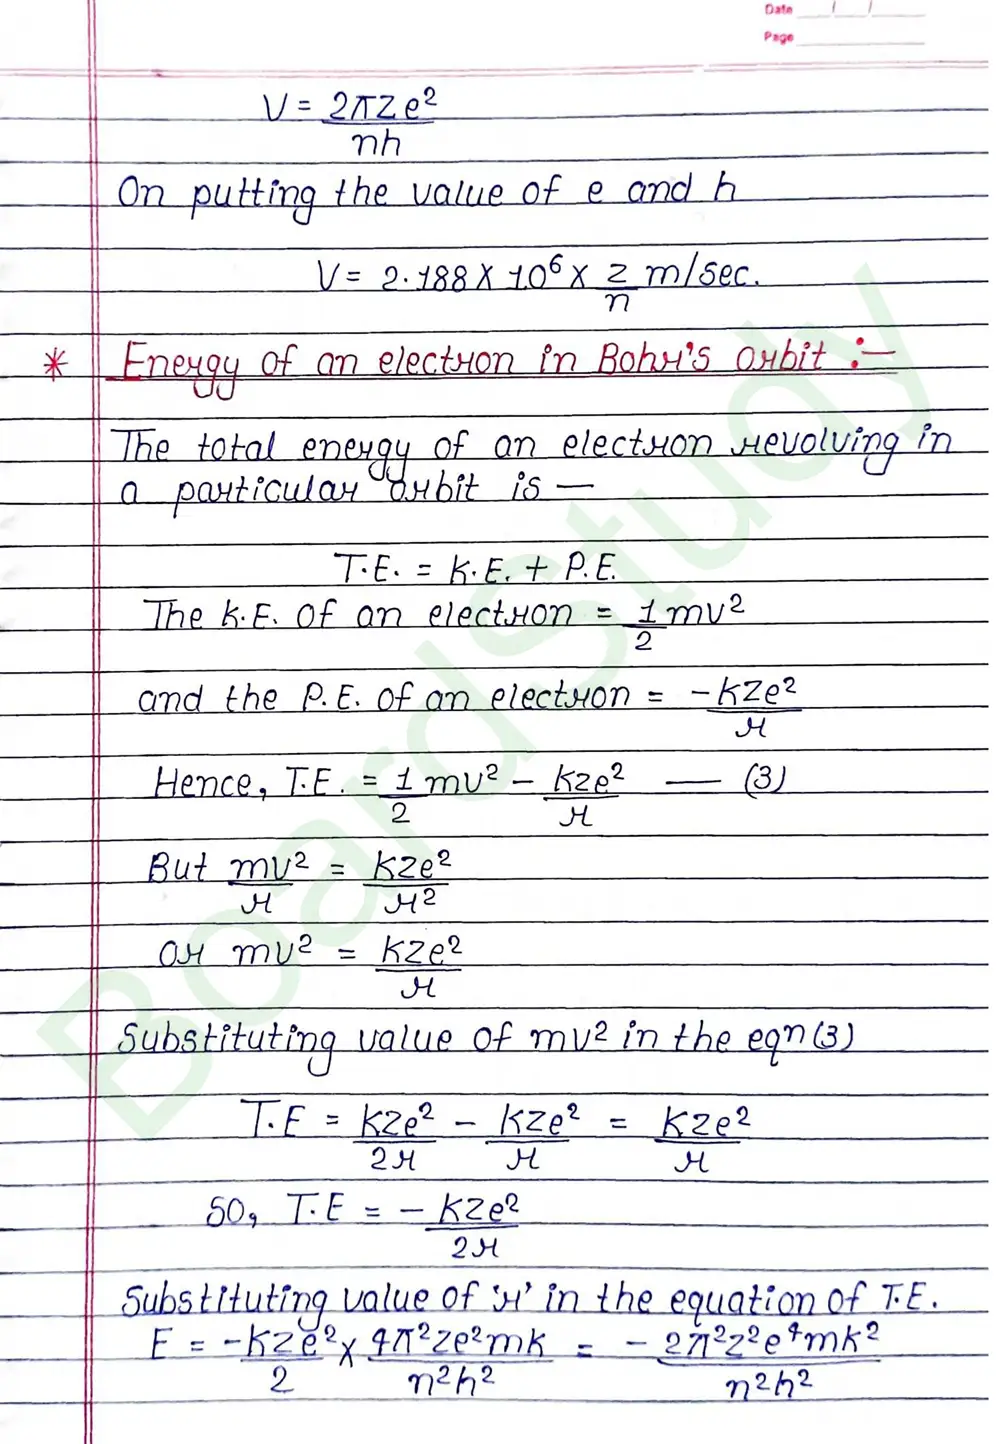 Date / /
Page
V = 2πZe²/nh
On putting the value of e and h
V = 2.188 X 10⁶ X z/n m/sec.
* Energy of an electron in Bohr's orbit :—
The total energy of an electron revolving in
a particular orbit is —
T.E. = K.E. + P.E.
The K.E. of an electron = 1/2 mv²
and the P.E. of an electron = -KZe²/r
Hence, T.E. = 1/2 mv² - kze²/r — (3)
But mv²/r = KZe²/r²
or mv² = KZe²/r
Substituting value of mv² in the eqn (3)
T.E = KZe²/2r - KZe²/r = KZe²/r
SO, T.E = - KZe²/2r
Substituting value of 'r' in the equation of T.E.
E = -KZe²/2 X 4π²Ze²mk/n²h² = - 2π²Z²e⁴mk²/n²h²
BoardStudy